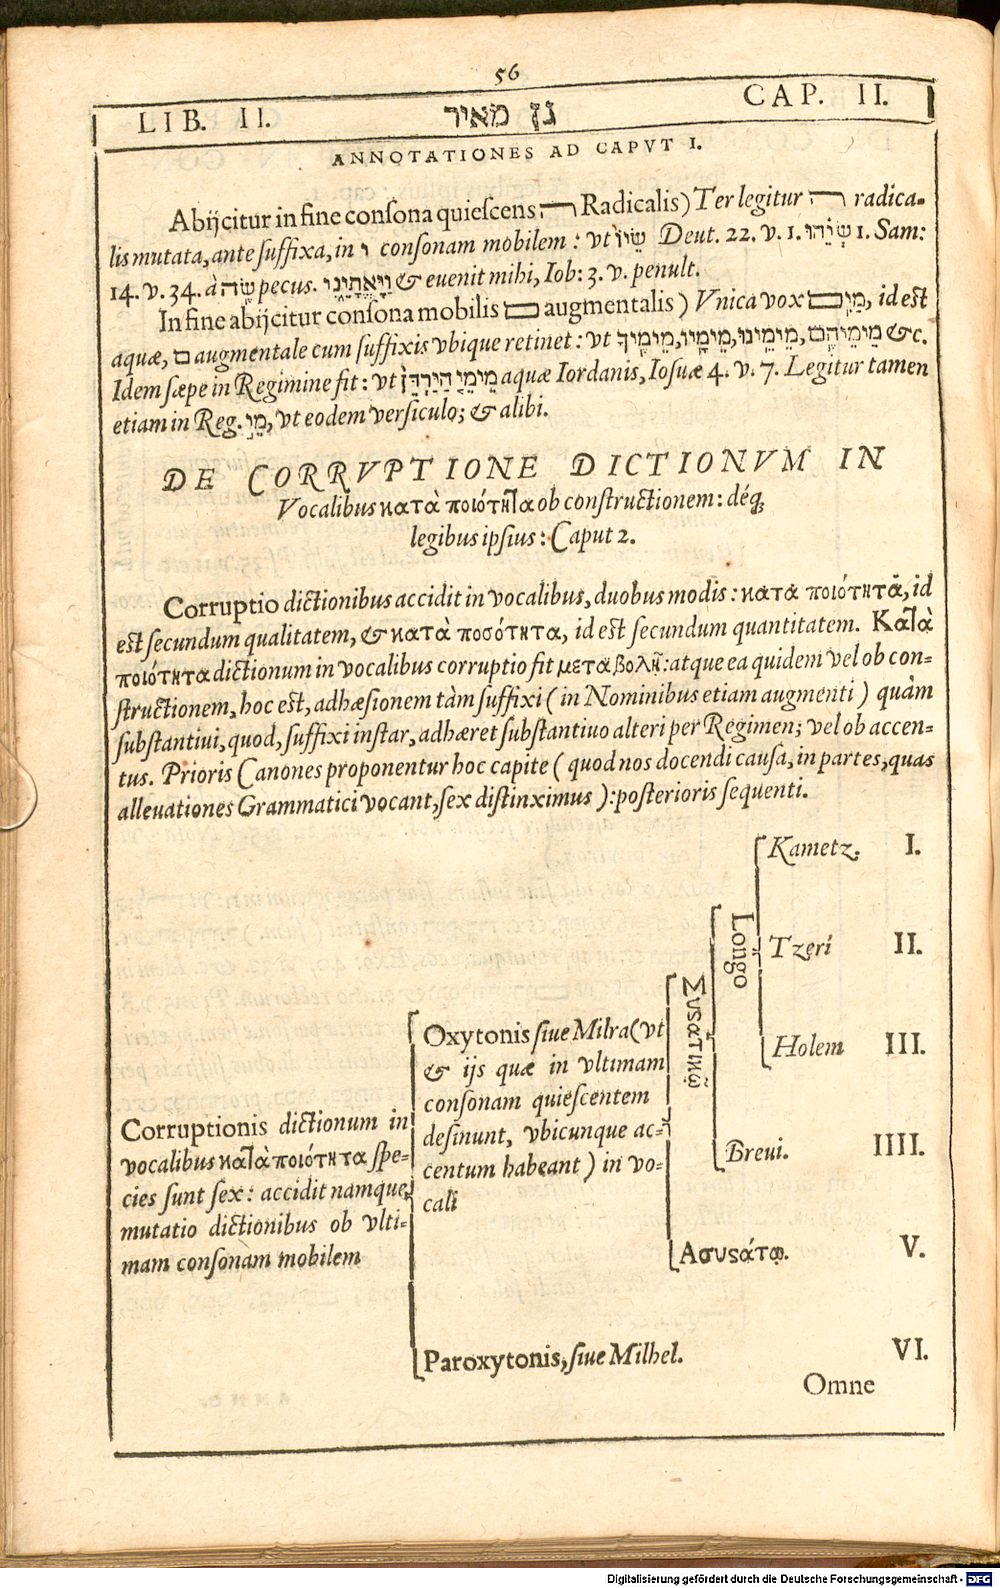 56
LIB. II. גן מאיר CAP. II.
ANNOTATIONES AD CAPVT I.
Abijcitur in fine conſona quieſcens ה Radicalis) Ter legitur ה radica-
lis mutata, ante ſuffixa, in ו conſonam mobilem: vt שֵׂיוֹ Deut. 22. v. 1. שְׂיֵהוּ 1. Sam:
14. v. 34. à שֶׂה pecus. וַיֶּאֱתָיֵנִי & euenit mihi, Iob: 3. v. penult.
In fine abijcitur conſona mobilis ם augmentalis) Vnica vox מַיִם, id est
aquæ, ם augmentale cum ſuffixis vbique retinet: vt מֵימֶיךָ, מֵימָיו, מֵימֵינוּ, מֵימֵיהֶם &c.
Idem ſæpe in Regimine fit: vt מֵימֵי הַיַּרְדֵּן aquæ Iordanis, Ioſuæ 4. v. 7. Legitur tamen
etiam in Reg. מֵי, vt eodem verſiculo; & alibi.
DE CORRVPTIONE DICTIONVM IN
Vocalibus κατὰ ποιότητα ob constructionem: déq;
legibus ipſius: Caput 2.
Corruptio dictionibus accidit in vocalibus, duobus modis: κατὰ ποιότητα, id
est ſecundum qualitatem, & κατὰ ποσότητα, id est ſecundum quantitatem. Κατὰ
ποιότητα dictionum in vocalibus corruptio fit μεταβολῇ: atque ea quidem vel ob con-
structionem, hoc est, adhæſionem tàm ſuffixi (in Nominibus etiam augmenti) quàm
ſubstantiui, quod, ſuffixi instar, adhæret ſubstantiuo alteri per Regimen; vel ob accen-
tus. Prioris Canones proponentur hoc capite (quod nos docendi cauſa, in partes, quas
alleuationes Grammatici vocant, ſex distinximus): posterioris ſequenti.
Corruptionis dictionum in
vocalibus κατὰ ποιότητα ſpe-
cies ſunt ſex: accidit namque
mutatio dictionibus ob vlti-
mam conſonam mobilem
Oxytonis ſiue Milra (vt
& ijs quæ in vltimam
conſonam quieſcentem
deſinunt, vbicunque ac-
centum habeant) in vo-
cali
Συϛατικῷ
Longo
Kametz. I.
Tzeri II.
Holem III.
Breui. IIII.
Ασυϛάτῳ. V.
Paroxytonis, ſiue Milhel. VI.
Omne
Digitalisierung gefördert durch die Deutsche Forschungsgemeinschaft - DFG